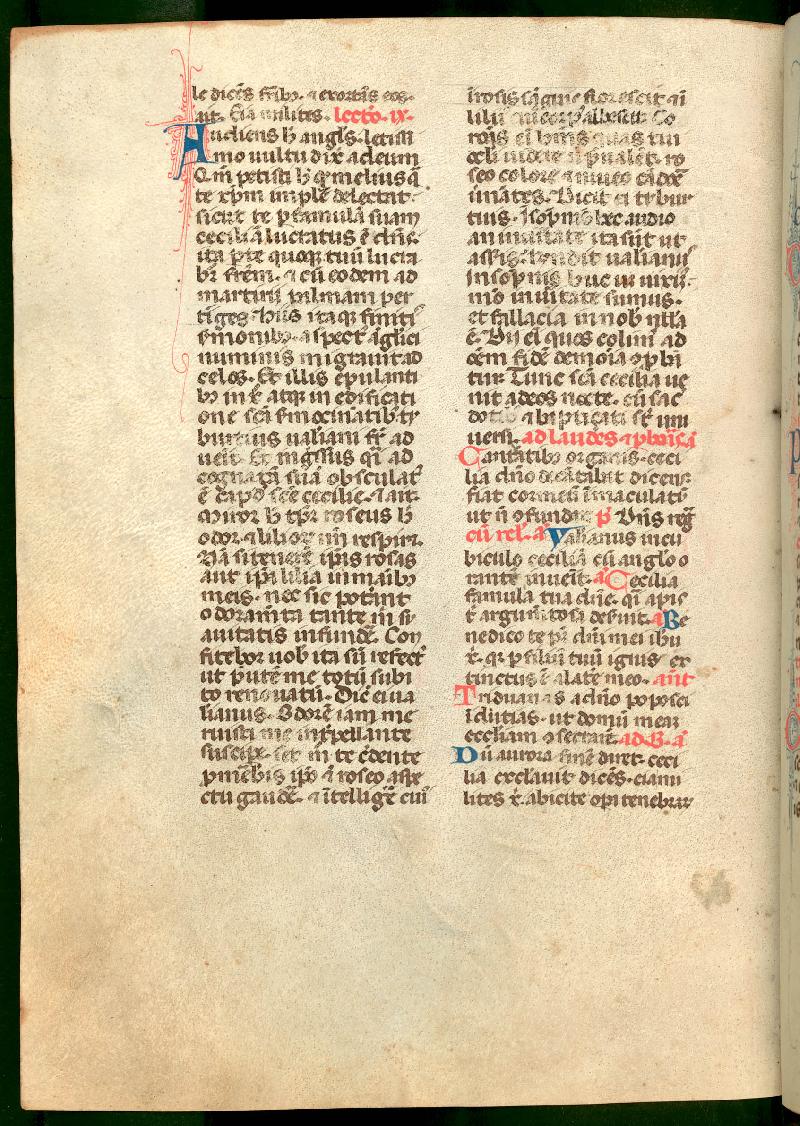 le dicēs fr̄ibꝫ. ⁊ exortās eos.
ait. Eia milites. lectio. ix.
Audiens h̄ angl̄s. letissi
mo uultu dix̄ ad eum
Qm̄ petisti h̄ q̄ melius q̄
te xp̄m implē delectat.
sicut te p̄ famulā suam
ceciliā lucratus ē dn̄s.
ita ꝑ te quoqꝫ tuū lucra
br̄ frēm. ⁊ cū eodem ad
martirij palmam per
tiges. Hiis itaqꝫ finiti
s̄monibꝫ. aspect᷒ āglici
numinis migrauit ad
celos. Et illis epulanti
bꝫ in x̄. atqꝫ in edificati
one scā s̄mocinātibꝫ ty
burtius ualiani fr̄ ad
uēit. Et ingr̄ssus q̄i ad
cognatā suā obsculat᷒
ē capd᷒ scē cecilie. ⁊ ait.
Miror h̄ tp̄r roseus h̄
odor ⁊ lilior᷒ uñ respiret.
Nā si tenerē ip̄as rosas
aut ip̄a lilia in maībꝫ
meis. nec sic potᷓant
odoram̄ta tante m̄ si
auitatis infundē. Con
fiteor uob̄ ita sū refect᷒
ut putē me totū subi
to renouatū. Dic̄ ei ua
lianus. Odorē iam me
ruisti me int̄pellante
suscipe. set m̄ te c̄dente
ꝓm̄ebis ip̄o ⁊ roseo aspe
ctu gaudē. ⁊ ītelligē cui᷒
ī rosis sāguis florescit ⁊ ī
liliis corp᷒ albescit. Co
ronas ei hēmus quas tui
ocl̄i uidere n̄ p̄ualēt. ro
seo colore ⁊ niueo cādore
uināt̄es. Dicit ei tybur
tius. Isopnis hec audio
an in uitate ita sūt ut
assis. Rendit ualianus
In sopnis huc usqꝫ uixi
mꝰ. in uitate sumus.
et fallacia in nob̄ nlla
ē. Dii ei quos colim᷒ ad
oēm fidē demoīa ꝯp̄bn̄
tur. Tunc scā cecilia ue
nit ad eos nocte. cū sac
dotibꝫ. ⁊ baptizati sr̄ uni
uersi. ad laudes ⁊ ꝑ horas. ā
Cantātibꝫ organis. ceci
lia dn̄o decātabat dicens.
fiat cor meū īmaculatū
ut n̄ ꝯfundar. p̄. Dn̄s reḡ.
cū rel. ā. Valianus in cu
biculo ceciliā cū anglo o
rante inuēit. ā. Cecilia
famula tua dn̄e. q̄i apis
t̄ argum̄tosa des̄uit. ā. Be
nedico te p̄r dn̄i mei ih̄u
x̄. qꝫ ꝑ filiū tuū ignis ex
tinctus ē a latē meo. ant̄
Triduanas a dn̄o poposci
īdutias. ut domū meā
eccl̄iam ꝯsecrarē. ad. B. ā
Dū aurora finē daret. ceci
lia exclauit dicēs. eia mi
lites x̄. abicite opa tenebrar